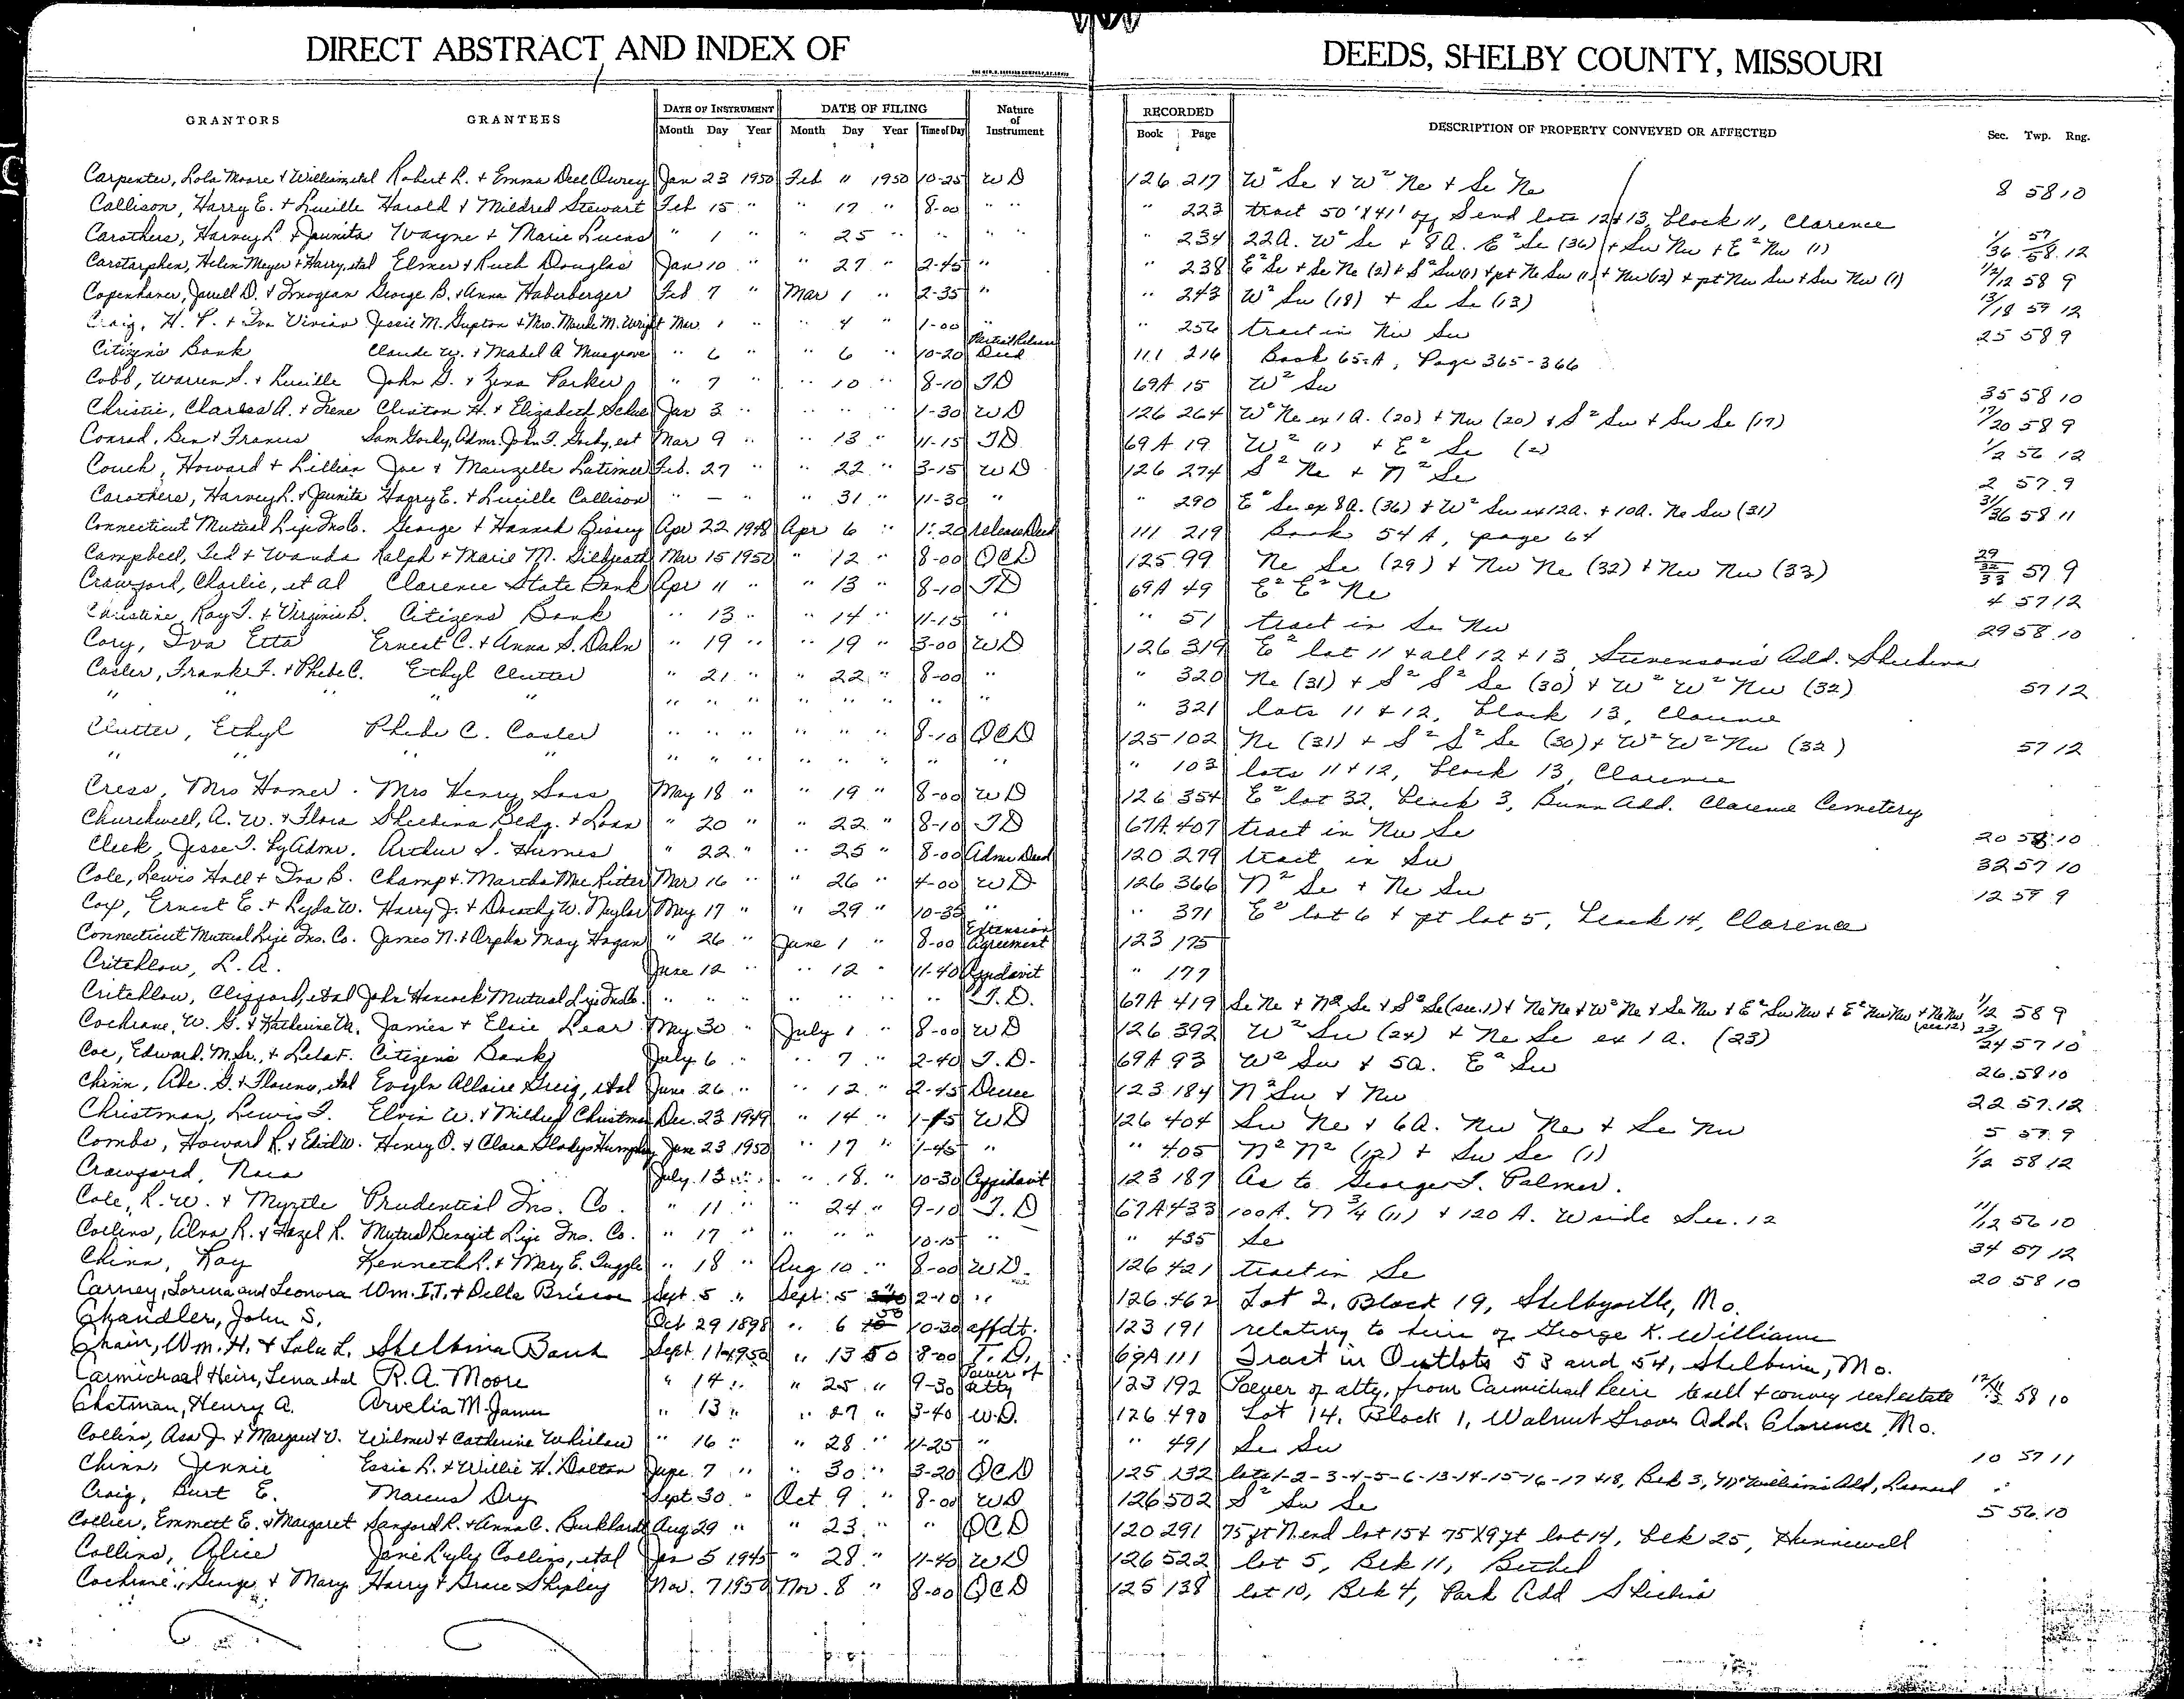 DIRECT ABSTRACT AND INDEX OF DEEDS, SHELBY COUNTY, MISSOURI
GRANTORS GRANTEES DATE OF INSTRUMENT DATE OF FILING Nature of Instrument RECORDED DESCRIPTION OF PROPERTY CONVEYED OR AFFECTED Sec. Twp. Rng.
Month Day Year Month Day Year Time of Day Book Page
Carpenter, Lola Moore & William, etal Robert L. & Emma Deel Jan 23 1950 Feb " 1950 10-25 WD 126 217 W² Se & W² Ne & Se Ne 8 58 10
Collison, Harry E. & Lucille Harold & Mildred Stewart Feb 15 " " 17 " 8-00 " " " 223 tract 50'X41' off S end lots 12&13, block 11, Clarence
Carothers, Harvey L. & Juanita Wayne & Marie Lucas " 1 " " 25 " " " " " 234 22A. W² Se & 8A. E² Se (36) & Sw Nw & E² Nw (1) 1/36 57/58 12
Carstarphen, Helen Meyer & Harry, etal Elmer & Ruth Douglas Jan 10 " " 27 " 2-45 " " 238 E² Se & Se Ne (2) & S² Sw (1) & pt Ne Sw (1) & Nw (12) & pt Nw Sw & Sw Nw (1) 1/2/12 58 9
Copenhaver, Jarrell D. & Imogean George B. & Anna Haberberger Feb 7 " Mar 1 " 2-35 " " 243 W² Sw (18) & Se Se (13) 13/18 59 12
Craig, H. P. & Iva Vivian Jessie M. Gupton & Mrs. Maude M. Wright Mar. 1 " " 4 " 1-00 " " 256 tract in Nw Sw 25 58 9
Citizens Bank Claude W. & Mabel A Musgrove " 6 " " 6 " 10-20 Partial Release Deed 111 216 Book 65-A, Page 365-366
Cobb, Warren S. & Lucille John G. & Zena Parker " 7 " " 10 " 8-10 TD 69A 15 W² Sw 35 58 10
Christie, Charles A. & Irene Clinton H. & Elizabeth Jan 3 " " " " 1-30 WD 126 264 W² Ne ex 1 A. (20) & Nw (20) & S² Sw & Sw Se (17) 17/20 58 9
Conrad, Ben & Frances Sam Gorby, Admr. John T. Gorby, est Mar 9 " " 13 " 11-15 TD 69A 19 W² (1) & E² Se (2) 1/2 56 12
Couch, Howard & Lillian Joe & Manzelle Latimer Feb. 27 " " 22 " 3-15 WD 126 274 S² Ne & N² Se 2 57 9
Carothers, Harvey L. & Juanita Harry E. & Lucille Collison " — " " 31 " 11-30 " " 290 E² Se ex 8A. (36) & W² Sw ex 12A. & 10A. Ne Sw (31) 31/36 58 11
Connecticut Mutual Life Ins Co. George & Hannah Bissey Apr 22 1948 Apr 6 " 1:20 release Deed 111 219 Book 54 A, page 64
Campbell, Ted & Wanda Ralph & Marie M. Gilbreath Mar 15 1950 " 12 " 8-00 QCD 125 99 Ne Se (29) & Nw Ne (32) & Nw Nw (33) 29/32/33 57 9
Crawford, Charlie, et al Clarence State Bank Apr 11 " " 13 " 8-10 TD 69A 49 E² E² Ne 4 57 12
Christine, Ray T. & Virginia B. Citizens Bank " 13 " " 14 " 11-15 " " 51 tract in Se Nw 29 58 10
Cory, Iva Etta Ernest C. & Anna S. Dahn " 19 " " 19 " 3-00 WD 126 319 E² lot 11 & all 12 & 13, Stevenson's Add. Shelbina
Casler, Frank F. & Phebe C. Ethyl Clutter " 21 " " 22 " 8-00 " " 320 Ne (31) & S² S² Se (30) & W² W² Nw (32) 57 12
" " " " " " " " " " " " " 321 lots 11 & 12, block 13, Clarence
Clutter, Ethyl Phebe C. Casler " " " " " " 8-10 QCD 125 102 Ne (31) & S² S² Se (30) & W² W² Nw (32) 57 12
" " " " " " " " " " " " 103 lots 11 & 12, block 13, Clarence
Cress, Mrs Homer Mrs Henry Sass May 18 " " 19 " 8-00 WD 126 354 E² lot 32, block 3, Bunn Add. Clarence Cemetery
Churchwell, A. W. & Flora Shelbina Bldg. & Loan " 20 " " 22 " 8-10 TD 67A 407 tract in Nw Se 20 58 10
Cleek, Jesse T. by Admr. Arthur S. Humes " 22 " " 25 " 8-00 Admr Deed 120 279 tract in Sw 32 57 10
Cole, Lewis Hall & Ina B. Champ & Martha Mae Ritter Mar 16 " " 26 " 4-00 WD 126 366 N² Se & Ne Sw 12 59 9
Cox, Ernest E. & Lyda W. Harry J. & Dorothy W. Naylor May 17 " " 29 " 10-35 " " 371 E² lot 6 & pt lot 5, block 14, Clarence
Connecticut Mutual Life Ins. Co. James N. & Orpha May Hogan " 26 " June 1 " 8-00 Extension Agreement 123 175
Critchlow, L. A. June 12 " " 12 " 11-40 Affidavit " 177
Critchlow, Clifford, etal John Hancock Mutual Life Ins Co. " " " " " " " T.D. 67A 419 Se Ne & N² Se & S² Se (sec. 1) & Ne Ne & W² Ne & Se Nw & E² Sw Nw & E² Nw Nw & Ne Nw (sec 12) 1/12 58 9
Cochrane, W. G. & Katherine M. James & Elsie Lear May 30 " July 1 " 8-00 WD 126 392 W² Sw (24) & Ne Se ex 1 a. (23) 23/24 57 10
Coe, Edward M. Sr., & Lela F. Citizens Bank July 6 " " 7 " 2-40 T.D. 69A 93 W² Sw & 5a. E² Sw 26 58 10
Chinn, Ade. G. & Florence, etal Evelyn Allaire Greig, etal June 26 " " 12 " 2-45 Decree 123 184 N² Sw & Nw 22 57 12
Christman, Lewis T. Elvin W. & Mildred Christman Dec. 23 1949 " 14 " 1-15 WD 126 404 Sw Ne & 6A. Nw Ne & Se Nw 5 57 9
Combs, Howard R. & Edith W. Henry O. & Clara Gladys Humphrey Jan 23 1950 " 17 " 1-45 " " 405 N² N² (12) & Sw Se (1) 1/12 58 12
Crawford, Nora July 13 " " 18 " 10-30 Affidavit 123 187 As to George T. Palmer.
Cole, R. W. & Myrtle Prudential Ins. Co. " 11 " " 24 " 9-10 T.D 67A 433 100A. N 3/4 (11) & 120 A. W side Sec. 12 11/12 56 10
Collins, Alva R. & Hazel R. Mutual Benefit Life Ins. Co. " 17 " " " " 10-15 " " 435 Se 34 57 12
Chinn, Ray Kenneth L. & Mary E. Tuggle " 18 " Aug 10 " 8-00 WD 126 421 tract in Se 20 58 10
Carney, Lorena and Leonora Wm. I. T. & Della Briscoe Sept 5 " Sept. 5 2-10 " 126 462 Lot 2, Block 19, Shelbyville, Mo.
Chandler, John S. Oct 29 1898 " 6 50 10-30 affdt. 123 191 relating to heirs of George K. Williams
Chain, Wm. H. & Lula L. Shelbina Bank Sept 11 1950 " 13 50 8-00 T.D. 69A 111 Tract in Outlots 53 and 54, Shelbina, Mo.
Carmichael Heirs, Lena etal R. A. Moore " 14 " " 25 " 9-30 Power of atty 123 192 Power of atty, from Carmichael heirs to sell & convey real estate 58 10
Chatman, Henry A. Arvelia M. James " 13 " " 27 " 3-40 W.D. 126 490 Lot 14, Block 1, Walnut Grove Add. Clarence, Mo.
Collins, Asa J. & Margaret V. Wilmer & Catherine Whitlow " 16 " " 28 " 11-25 " " 491 Se Sw 10 57 11
Chinn, Jennie Essie R. & Willie H. Dalton June 7 " " 30 " 3-20 QCD 125 132 lots 1-2-3-4-5-6-13-14-15-16-17 & 18, Blk 3, McWilliams Add, Leonard
Craig, Burt E. Marcus Dry Sept 30 " Oct 9 " 8-00 WD 126 502 S² Sw Se 5 56 10
Collier, Emmett E. & Margaret Sanford R. & Anna C. Burkhardt Aug 29 " " 23 " " QCD 120 291 75 ft N end lot 15 & 75X9 ft lot 14, blk 25, Hunnewell
Collins, Alice Jane Lyly Collins, etal Jan 5 1945 " 28 " 11-40 WD 126 522 lot 5, Blk 11, Bethel
Cochrane, George & Mary Harry & Grace Shipley Nov. 7 1950 Nov. 8 " 8-00 QCD 125 138 lot 10, Blk 4, Park Add Shelbina